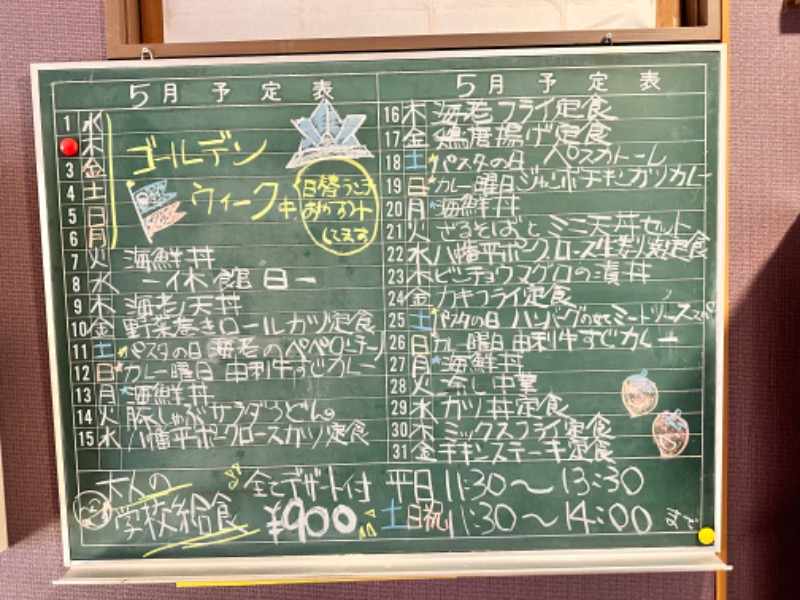 5月 予定表
1 水
木
3 金
4 土
5 日
6 月
ゴールデン
ウィーク中
日替りニ
おやすみ
してます
7 火 海鮮丼
8 水 ー休館日ー
9 木 海老天丼
10 金 野菜巻きロールカツ定食
11 土 パスタの日 海老のペペロンチーノ
12 日 カレー曜日 由利牛すじカレー
13 月 海鮮丼
14 火 豚しゃぶサラダうどん
15 水 八幡平ポークロースカツ定食
5月 予定表
16 木 海老フライ定食
17 金 鶏唐揚げ定食
18 土 パスタの日 ペスカトーレ
19 日 カレー曜日 ジャンボチキンカツカレー
20 月 海鮮丼
21 火 ざるそばとミニ天丼セット
22 水 八幡平ポークロース生姜焼定食
23 木 ビンチョウマグロの漬丼
24 金 カキフライ定食
25 土 パスタの日 ハンバーグのせミートソーススパ
26 日 カレー曜日 由利牛すじカレー
27 月 海鮮丼
28 火 冷し中華
29 水 カツ丼定食
30 木 ミックスフライ定食
31 金 チキンステーキ定食
大人の
学校給食
全てデザート付
¥900
平日 11:30〜13:30
土日祝 11:30〜14:00 まで